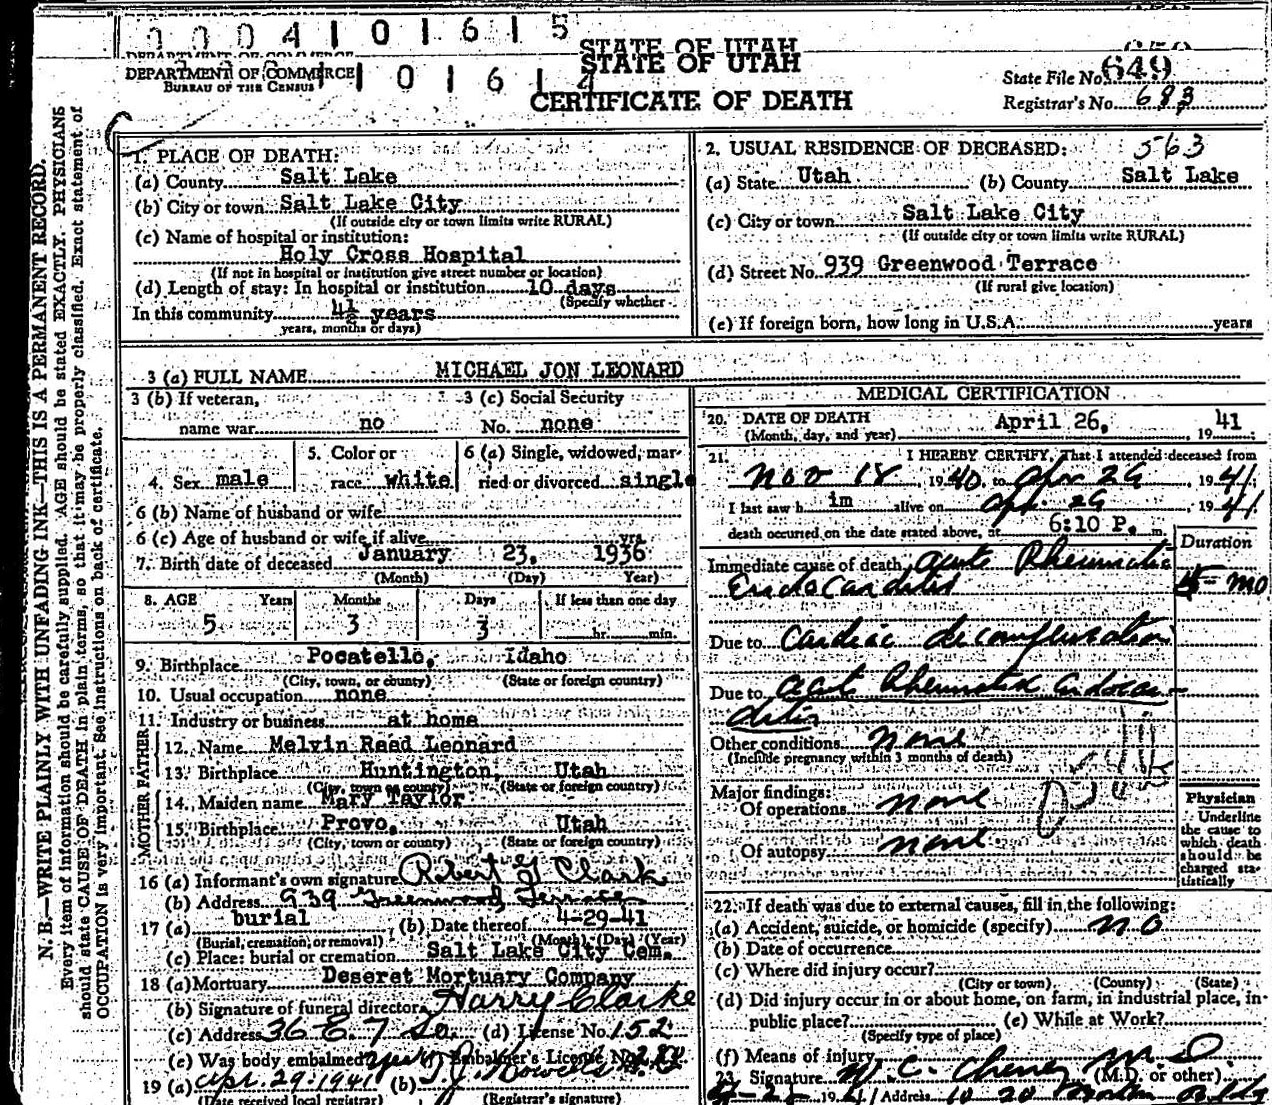 0 0 0 4 1 0 1 6 1 5
STATE OF UTAH
DEPARTMENT OF COMMERCE
BUREAU OF THE CENSUS
1 0 1 6 1 4
STATE OF UTAH
CERTIFICATE OF DEATH
State File No. 649
Registrar's No. 683
N. B.—WRITE PLAINLY WITH UNFADING INK—THIS IS A PERMANENT RECORD.
Every item of information should be carefully supplied. AGE should be stated EXACTLY. PHYSICIANS
should state CAUSE OF DEATH in plain terms, so that it may be properly classified. Exact statement of
OCCUPATION is very important. See instructions on back of certificate.
1. PLACE OF DEATH:
(a) County Salt Lake
(b) City or town Salt Lake City
(If outside city or town limits write RURAL)
(c) Name of hospital or institution:
Holy Cross Hospital
(If not in hospital or institution give street number or location)
(d) Length of stay: In hospital or institution 10 days
(Specify whether
In this community 4½ years
years, months or days)
2. USUAL RESIDENCE OF DECEASED: 563
(a) State Utah (b) County Salt Lake
(c) City or town Salt Lake City
(If outside city or town limits write RURAL)
(d) Street No. 939 Greenwood Terrace
(If rural give location)
(e) If foreign born, how long in U.S.A. years
3 (a) FULL NAME MICHAEL JON LEONARD
3 (b) If veteran, name war no
3 (c) Social Security No. none
4. Sex male
5. Color or race white
6 (a) Single, widowed, married or divorced single
6 (b) Name of husband or wife
6 (c) Age of husband or wife if alive yrs.
7. Birth date of deceased January 23, 1936
(Month) (Day) Year)
8. AGE Years Months Days If less than one day
5 3 3 hr. min.
9. Birthplace Pocatello, Idaho
(City, town, or county) (State or foreign country)
10. Usual occupation none
11. Industry or business at home
FATHER
12. Name Melvin Reed Leonard
13. Birthplace Huntington, Utah
(City, town or county) (State or foreign country)
MOTHER
14. Maiden name Mary Taylor
15. Birthplace Provo, Utah
(City, town or county) (State or foreign country)
16 (a) Informant's own signature Robert G Clark
(b) Address 939 Greenwood Terrace
17 (a) burial (b) Date thereof 4-29-41
(Burial, cremation, or removal) (Month) (Day) (Year)
(c) Place: burial or cremation Salt Lake City Cem.
18 (a) Mortuary Deseret Mortuary Company
(b) Signature of funeral director Harry Clarke
(c) Address 36 E. 7 So. (d) License No. 152
(e) Was body embalmed yes Embalmer's License No.
19 (a) Apr. 29-1941 (b)
(Date received local registrar) (Registrar's signature)
MEDICAL CERTIFICATION
20. DATE OF DEATH April 26, 19 41
(Month, day, and year)
21. I HEREBY CERTIFY, That I attended deceased from
Nov 18, 1940, to Apr 26, 1941.
I last saw h im alive on Apr 26, 1941
death occurred on the date stated above, at 6:10 P. m.
Duration
Immediate cause of death Acute Rheumatic
Endocarditis 5 mo
Due to Cardiac decompensation
Due to acute Rheumatic endocar-
ditis
Other conditions none
(Include pregnancy within 3 months of death)
Major findings:
Of operations none
Of autopsy none
Physician
Underline the cause to which death should be charged statistically
22. If death was due to external causes, fill in the following:
(a) Accident, suicide, or homicide (specify) no
(b) Date of occurrence
(c) Where did injury occur?
(City or town) (County) (State)
(d) Did injury occur in or about home, on farm, in industrial place, in
public place? (e) While at Work?
(Specify type of place)
(f) Means of injury
23. Signature W. C. Cheney M D (M.D. or other)
1941 Address 10 20